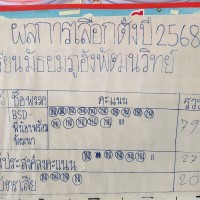 ผลการเลือกตั้งปี 2568
เรียนมัธยมภูฮังพัฒนวิทย์
ชื่อพรรค คะแนน รวม
BSD-
พี่น้องพร้อม 79
พัฒนา
ประสงค์ลงคะแนน 27
บัตรเสีย 20